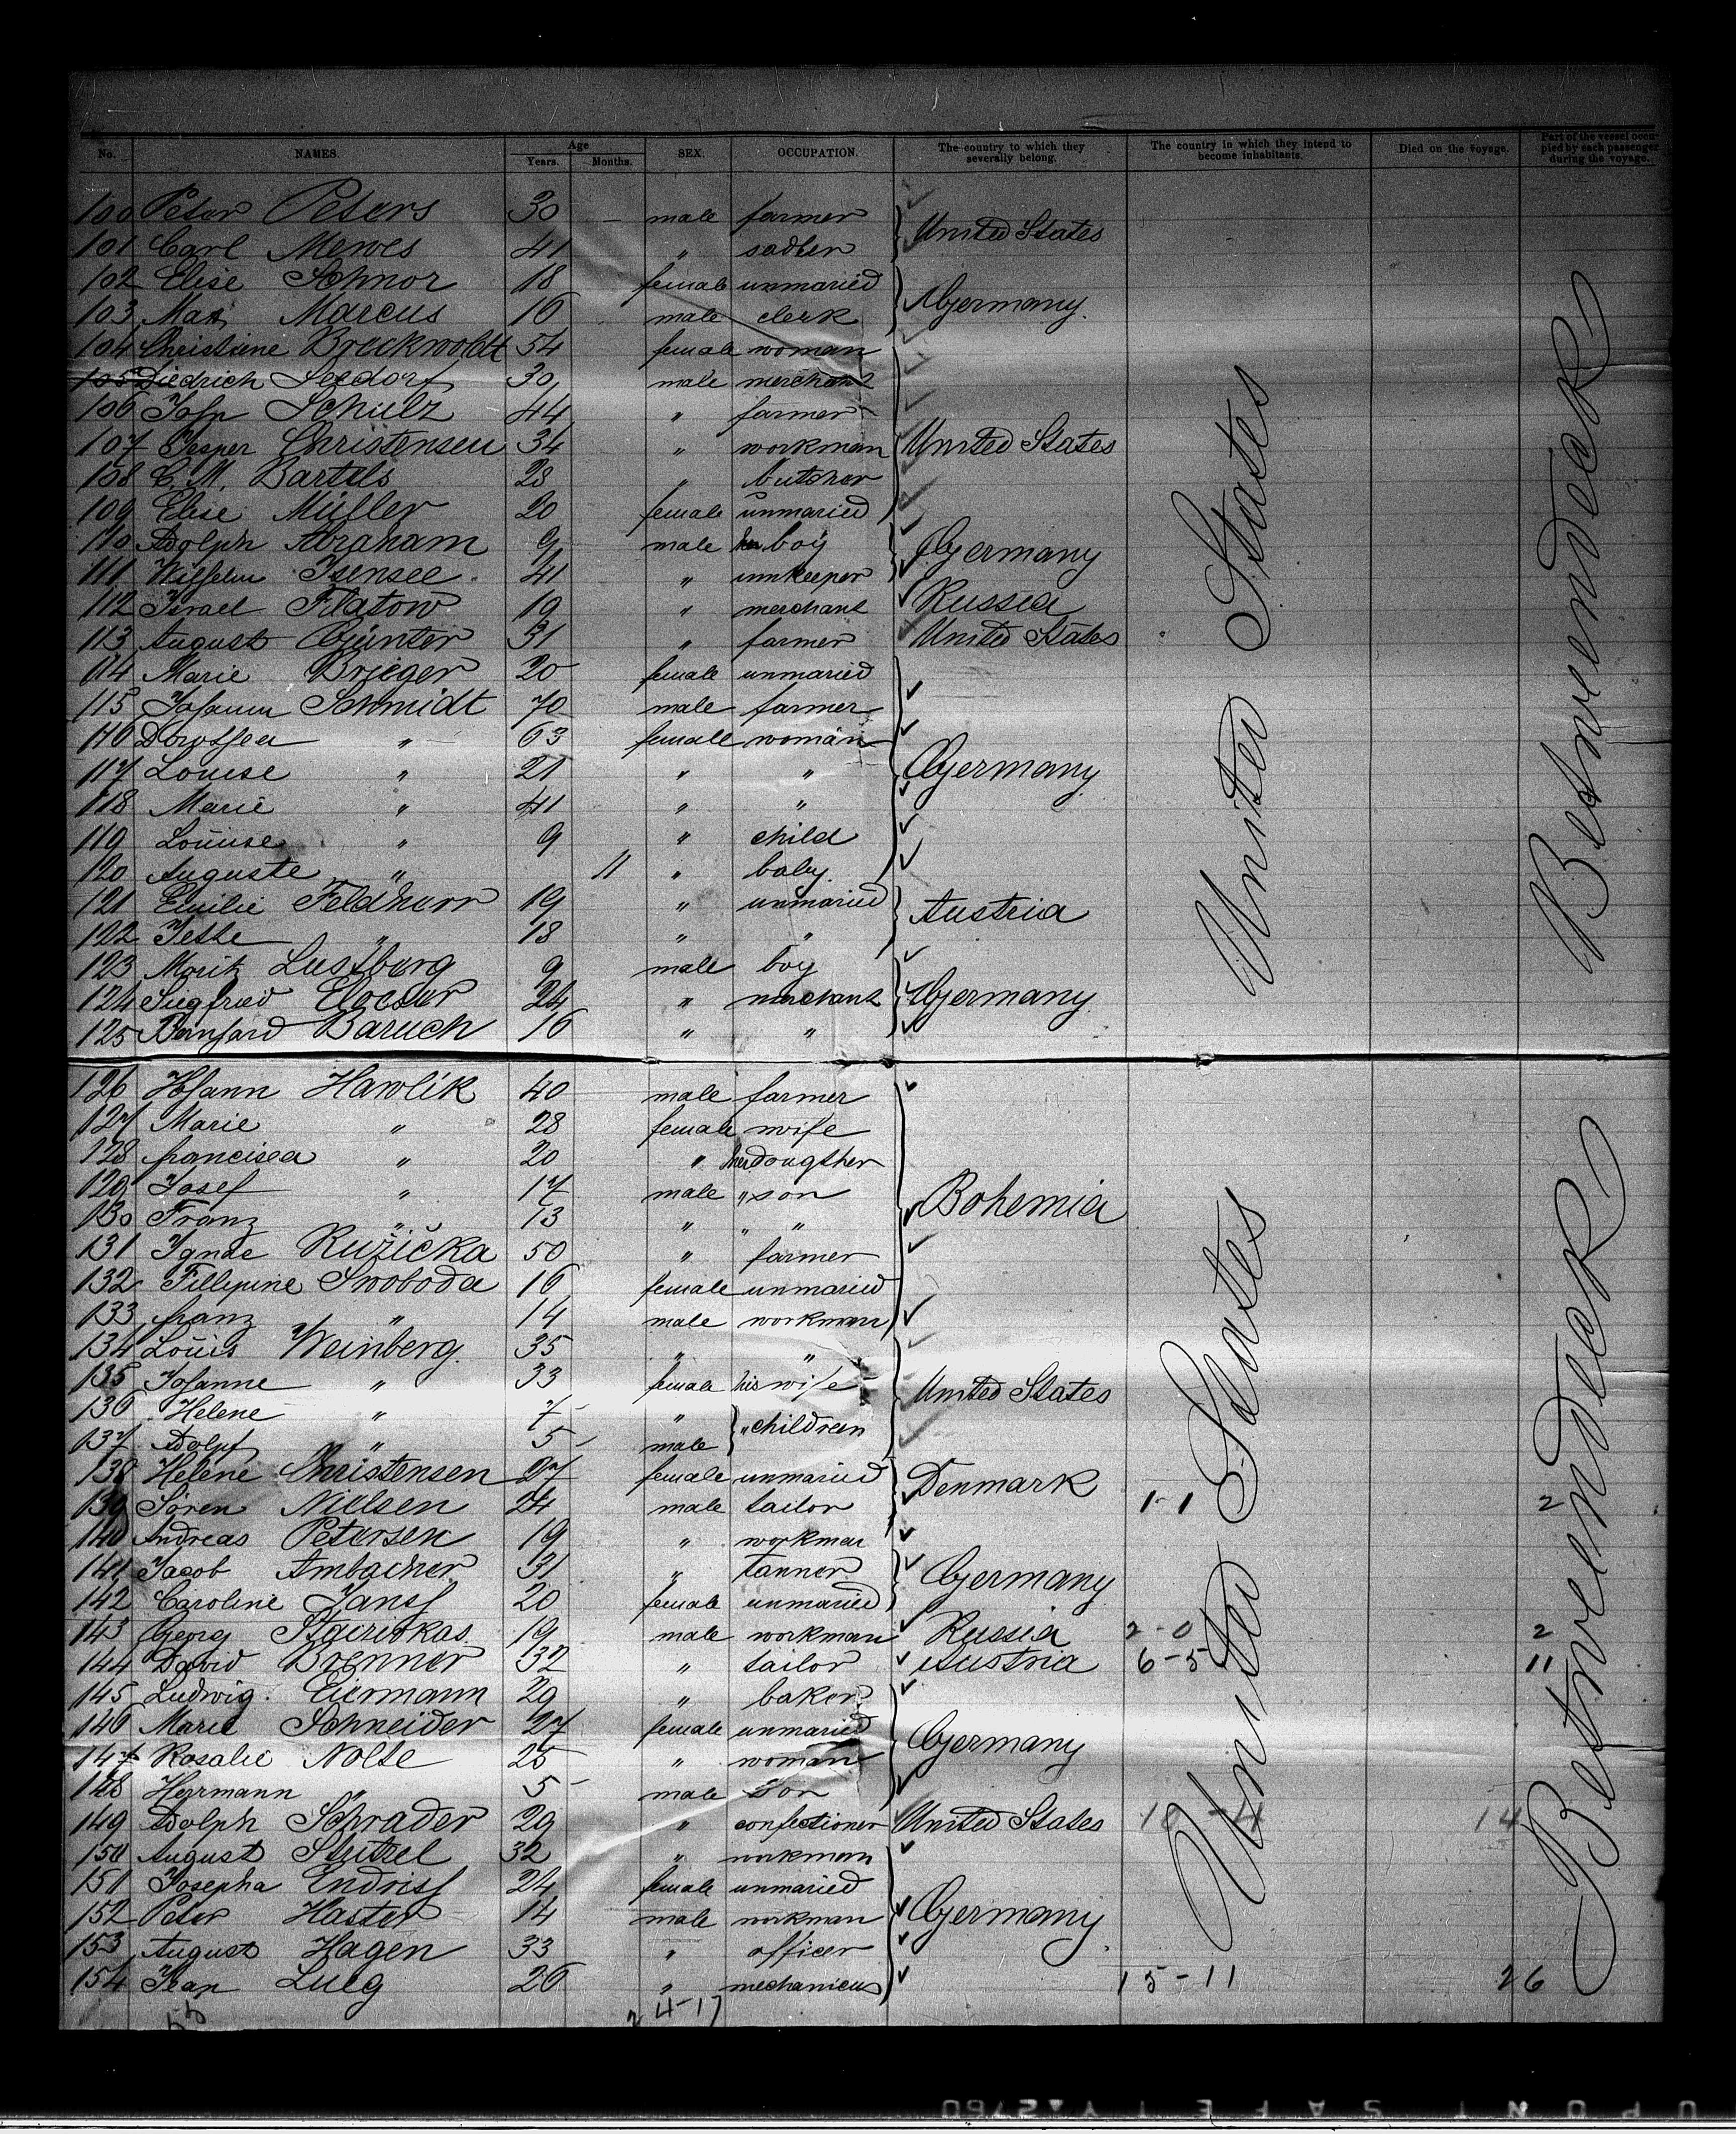 No. NAMES. Age Years. Months. SEX. OCCUPATION. The country to which they severally belong. The country in which they intend to become inhabitants. Died on the voyage. Part of the vessel occupied by each passenger during the voyage.
100 Peter Peters 30 – male farmer
United States
101 Carl Mewes 41 " sadler
102 Elise Schnor 18 female unmaried
Germany.
103 Max Marcus 16 male clerk
104 Christine Brockwoldt 54 female woman
105 Diedrich Seedorf 30 male merchant
106 John Schulz 44 " farmer
107 Jesper Christensen 34 " workman United States
108 C. M. Bartels 28 " butcher
109 Elise Müller 20 female unmaried
110 Adolph Abraham 9 male boy
Germany
111 Wilhelm Isensee 41 " innkeeper
112 Israel Flatow 19 " merchant Russia
113 August Günter 31 " farmer United States
114 Marie Brieger 20 female unmaried
115 Johann Schmidt 70 male farmer
116 Dorothea " 63 female woman
117 Louise " 21 " " Germany
118 Marie " 41 " "
119 Louise " 9 " child
120 Auguste " 11 " baby
121 Emilie Feldhorr 19 " unmaried
Austria
122 Jette " 18 " "
123 Moritz Lustberg 9 male boy
124 Siegfried 24 " merchant Germany
125 Bernhard Baruch 16 " "
United States
Betweendeck
126 Johann Hawlik 40 male farmer
127 Marie " 28 female wife
128 francisca " 20 " her dougther
129 Josef " 17 male " son Bohemia
130 Franz " 13 " " "
131 Ignac Ružička 50 " farmer
132 Fillipine Swoboda 16 female unmaried
133 franz " 14 male workman
134 Louis Weinberg 35 " "
135 Johanne " 33 female his wife United States
136 Helene " 7 " " children
137 Adolph " 5 male
138 Helene Christensen 27 female unmaried Denmark
139 Sören Nielsen 24 male tailor 1-1 2
140 Andreas Petersen 19 " workman
141 Jacob Ambacher 31 " tanner Germany
142 Caroline Janss 20 female unmaried
143 Georg 19 male workman Russia 2-0 2
144 David Brenner 32 " tailor Austria 6-5 11
145 Ludwig Eiermann 29 " baker
146 Marie Schneider 27 female unmaried
Germany
147 Rosalie Nolte 25 " woman
148 Herrmann " 5 male son
149 Adolph Schrader 29 " confectioner United States 10-4 14
150 August Stutzel 32 " workman
151 Josepha Endriss 24 female unmaried
152 Peter Haster 14 male workman Germany
153 August Hagen 33 " officer
154 Jean Lueg 26 " mechanicus 15-11 26
United States
Betweendeck
55 24-17
DUPONT SAFETY 2760